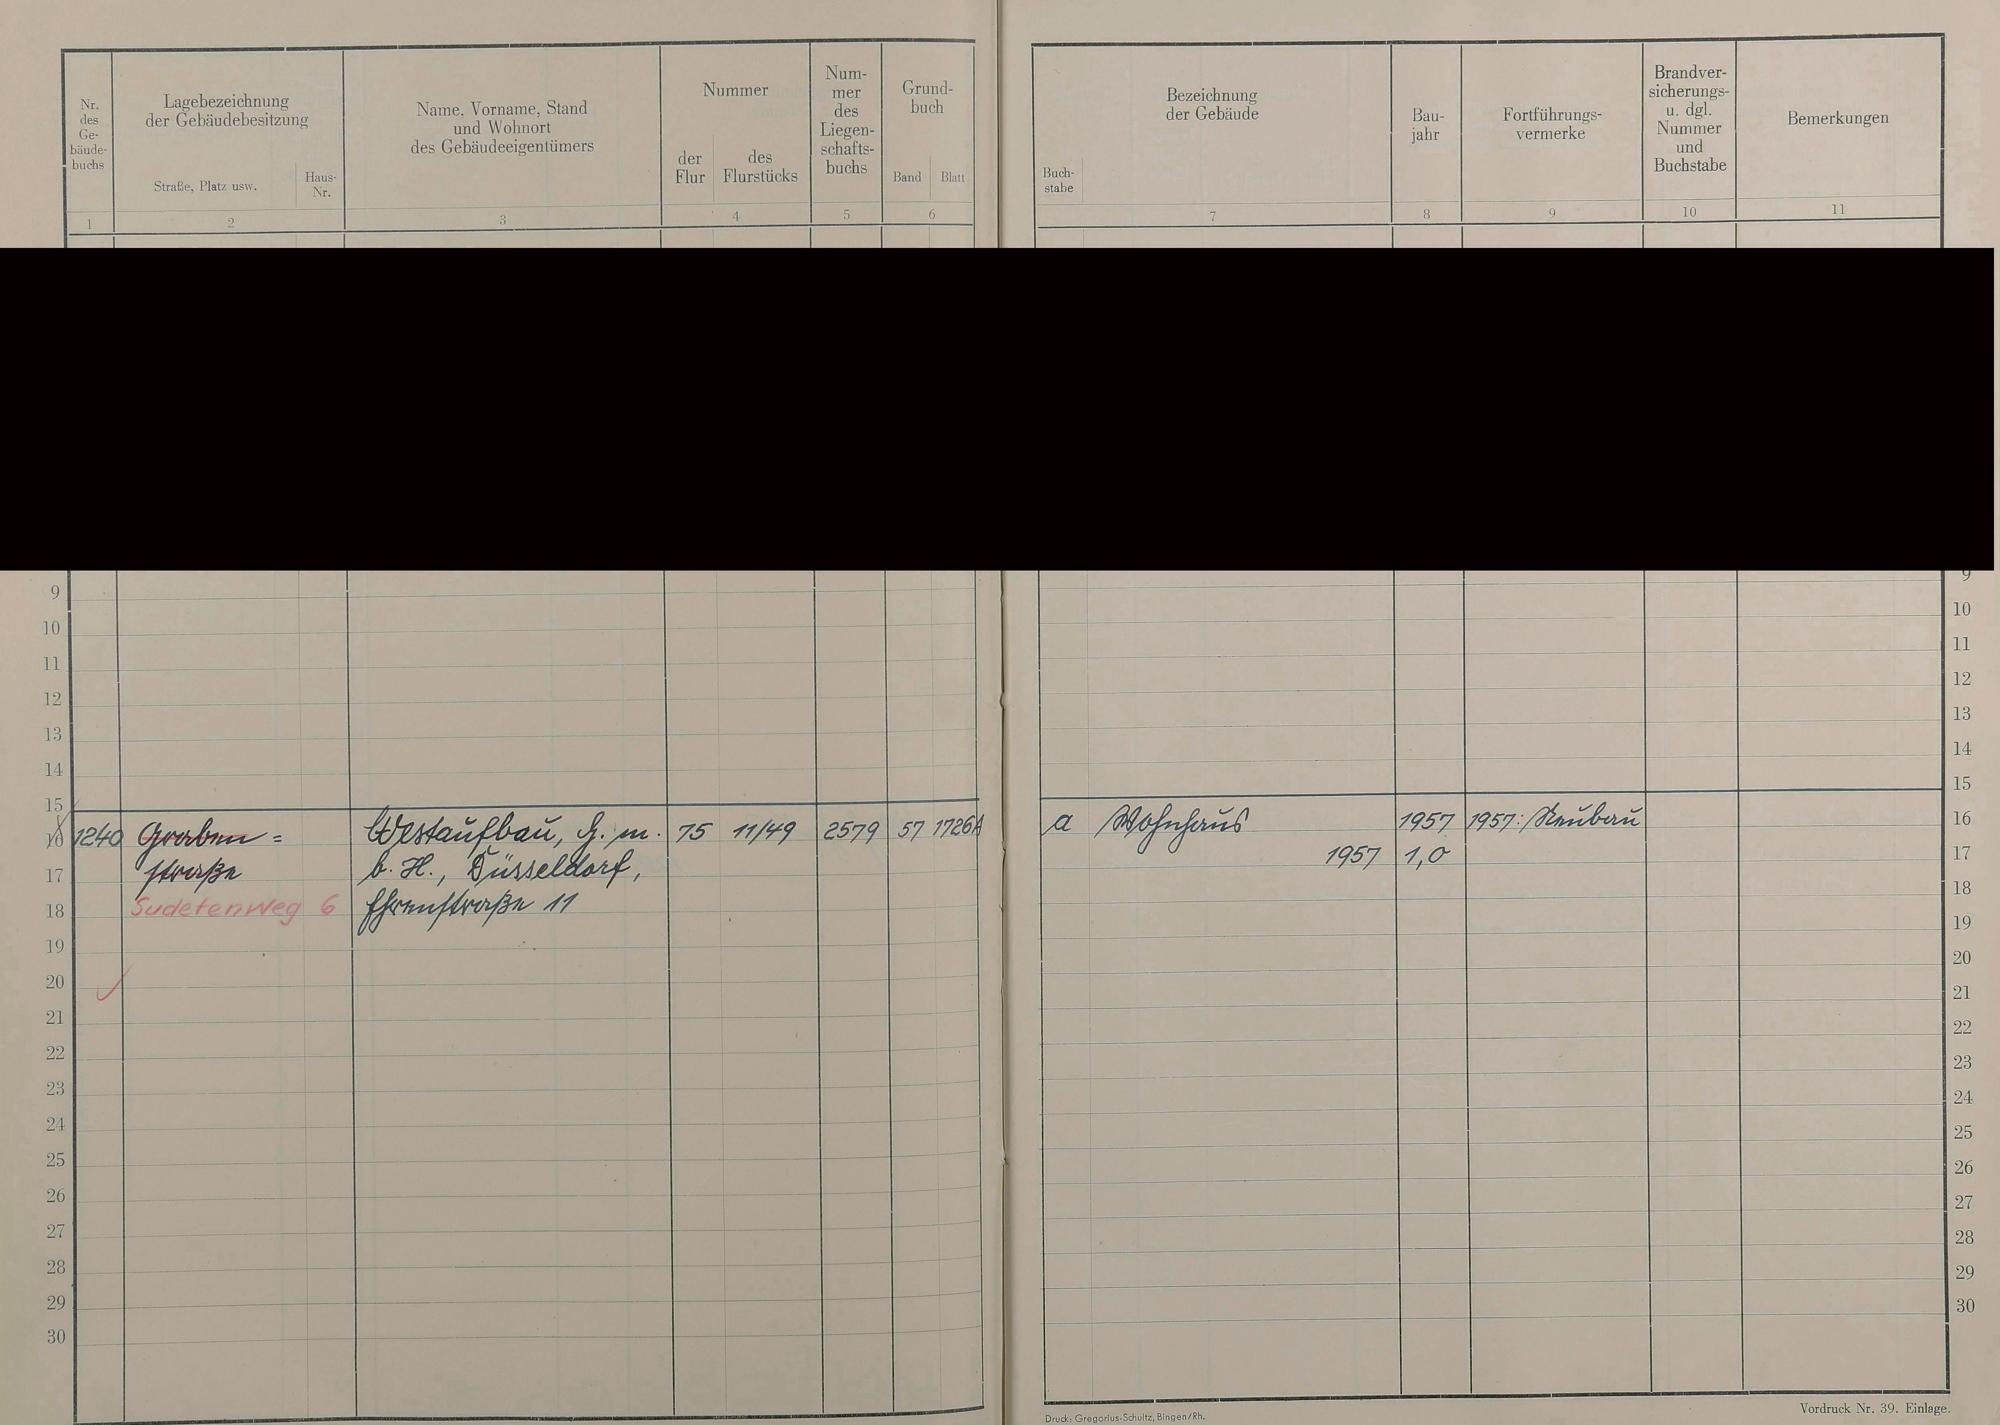 Nr.
des
Ge-
bäude-
buchs
Lagebezeichnung
der Gebäudebesitzung
Straße, Platz usw.
Haus-
Nr.
Name, Vorname, Stand
und Wohnort
des Gebäudeeigentümers
Nummer
der
Flur
des
Flurstücks
Num-
mer
des
Liegen-
schafts-
buchs
Grund-
buch
Band
Blatt
1
2
3
4
5
6
Buch-
stabe
Bezeichnung
der Gebäude
Bau-
jahr
Fortführungs-
vermerke
Brandver-
sicherungs-
u. dgl.
Nummer
und
Buchstabe
Bemerkungen
7
8
9
10
11
9
10
11
12
13
14
15
16 1240 Graben = Westaufbau, G. m. 75 11/49 2579 57 1726A
17 straße b. H., Düsseldorf,
18 Sudetenweg 6 Ehrenstraße 11
19
20
21
22
23
24
25
26
27
28
29
30
9
10
11
12
13
14
15
a Wohnhaus 1957 1957: Neubau 16
1957 1,0 17
18
19
20
21
22
23
24
25
26
27
28
29
30
Druck: Gregorius-Schultz, Bingen/Rh.
Vordruck Nr. 39. Einlage.